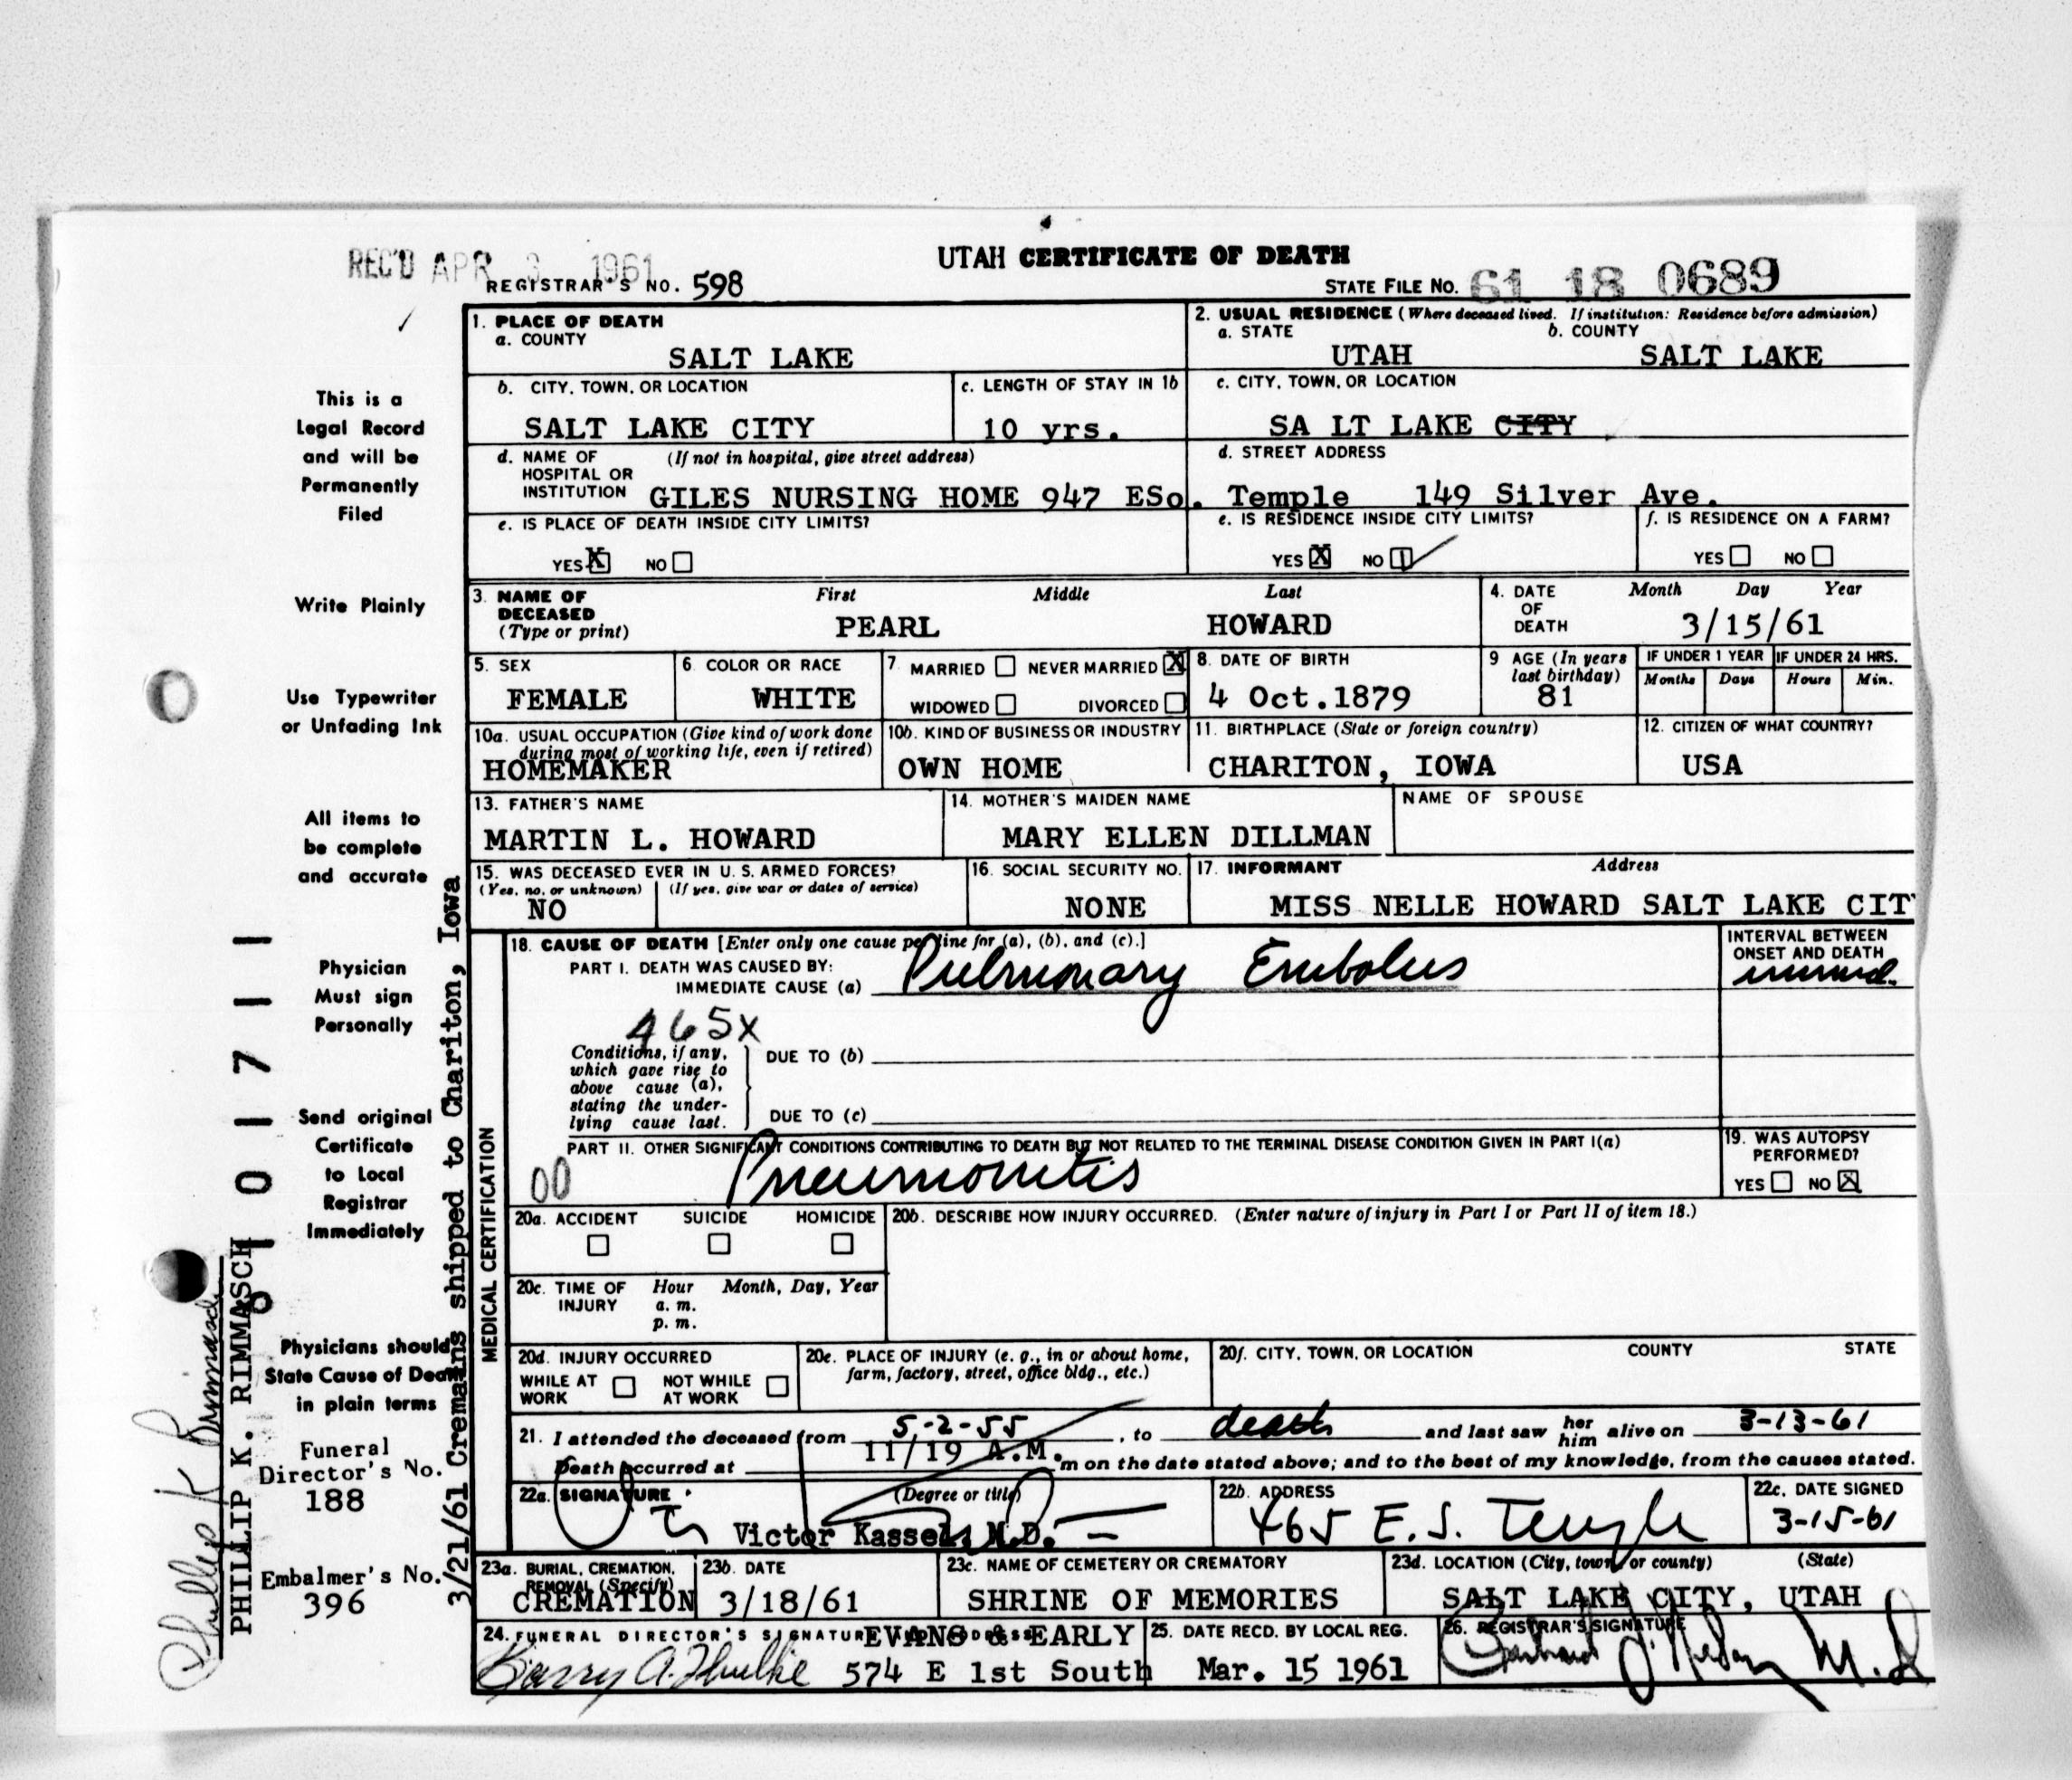 REC'D APR 3 1961
UTAH CERTIFICATE OF DEATH
REGISTRAR'S NO. 598
STATE FILE NO. 61 18 0689
1. PLACE OF DEATH
a. COUNTY
SALT LAKE
2. USUAL RESIDENCE (Where deceased lived. If institution: Residence before admission)
a. STATE b. COUNTY
UTAH SALT LAKE
b. CITY, TOWN, OR LOCATION
SALT LAKE CITY
c. LENGTH OF STAY IN 1b
10 yrs.
c. CITY, TOWN, OR LOCATION
SA LT LAKE CITY
d. NAME OF HOSPITAL OR INSTITUTION (If not in hospital, give street address)
GILES NURSING HOME 947 ESo. Temple
d. STREET ADDRESS
149 Silver Ave.
e. IS PLACE OF DEATH INSIDE CITY LIMITS?
YES X NO
e. IS RESIDENCE INSIDE CITY LIMITS?
YES X NO
f. IS RESIDENCE ON A FARM?
YES NO
3. NAME OF DECEASED (Type or print)
First Middle Last
PEARL HOWARD
4. DATE OF DEATH
Month Day Year
3/15/61
5. SEX
FEMALE
6. COLOR OR RACE
WHITE
7. MARRIED NEVER MARRIED X
WIDOWED DIVORCED
8. DATE OF BIRTH
4 Oct.1879
9 AGE (In years last birthday)
81
IF UNDER 1 YEAR
Months Days
IF UNDER 24 HRS.
Hours Min.
10a. USUAL OCCUPATION (Give kind of work done during most of working life, even if retired)
HOMEMAKER
10b. KIND OF BUSINESS OR INDUSTRY
OWN HOME
11. BIRTHPLACE (State or foreign country)
CHARITON, IOWA
12. CITIZEN OF WHAT COUNTRY?
USA
13. FATHER'S NAME
MARTIN L. HOWARD
14. MOTHER'S MAIDEN NAME
MARY ELLEN DILLMAN
NAME OF SPOUSE
15. WAS DECEASED EVER IN U. S. ARMED FORCES?
(Yes, no, or unknown) (If yes, give war or dates of service)
NO
16. SOCIAL SECURITY NO.
NONE
17. INFORMANT Address
MISS NELLE HOWARD SALT LAKE CIT
MEDICAL CERTIFICATION
18. CAUSE OF DEATH [Enter only one cause per line for (a), (b), and (c).]
PART I. DEATH WAS CAUSED BY:
IMMEDIATE CAUSE (a) Pulmonary Embolus
INTERVAL BETWEEN ONSET AND DEATH
465X
Conditions, if any, which gave rise to above cause (a), stating the underlying cause last.
DUE TO (b)
DUE TO (c)
PART II. OTHER SIGNIFICANT CONDITIONS CONTRIBUTING TO DEATH BUT NOT RELATED TO THE TERMINAL DISEASE CONDITION GIVEN IN PART I(a)
00 Pneumonitis
19. WAS AUTOPSY PERFORMED?
YES NO X
20a. ACCIDENT SUICIDE HOMICIDE
20b. DESCRIBE HOW INJURY OCCURRED. (Enter nature of injury in Part I or Part II of item 18.)
20c. TIME OF INJURY
Hour Month, Day, Year
a. m.
p. m.
20d. INJURY OCCURRED
WHILE AT WORK NOT WHILE AT WORK
20e. PLACE OF INJURY (e. g., in or about home, farm, factory, street, office bldg., etc.)
20f. CITY, TOWN, OR LOCATION COUNTY STATE
21. I attended the deceased from 5-2-55, to death and last saw her him alive on 3-13-61
Death occurred at 11/19 A.M. m on the date stated above; and to the best of my knowledge, from the causes stated.
22a. SIGNATURE (Degree or title)
Victor Kassel, M.D.
22b. ADDRESS
465 E. S. Temple
22c. DATE SIGNED
3-15-61
23a. BURIAL, CREMATION, REMOVAL (Specify)
CREMATION
23b. DATE
3/18/61
23c. NAME OF CEMETERY OR CREMATORY
SHRINE OF MEMORIES
23d. LOCATION (City, town, or county) (State)
SALT LAKE CITY, UTAH
24. FUNERAL DIRECTOR'S SIGNATURE ADDRESS
EVANS & EARLY
574 E 1st South
25. DATE RECD. BY LOCAL REG.
Mar. 15 1961
26. REGISTRAR'S SIGNATURE
M.D
This is a
Legal Record
and will be
Permanently
Filed
Write Plainly
Use Typewriter
or Unfading Ink
All items to
be complete
and accurate
Physician
Must sign
Personally
Send original
Certificate
to Local
Registrar
Immediately
Physicians should
State Cause of Death
in plain terms
Funeral
Director's No.
188
Embalmer's No.
396
3/21/61 Cremains shipped to Chariton, Iowa
PHILLIP K. RIMMASCH
Phillip K Rimmasch